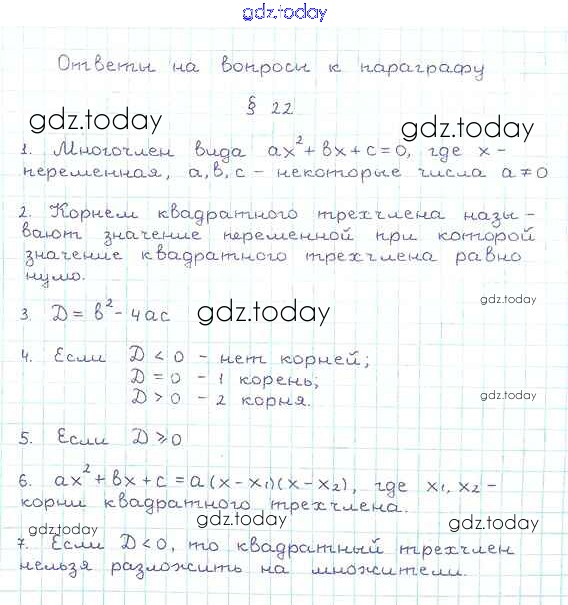 gdz.today
Ответы на вопросы к параграфу
§ 22
gdz.today
gdz.today
1. Многочлен вида ax²+bx+c=0, где x -
переменная, a,b,c - некоторые числа a≠0
2. Корнем квадратного трехчлена назы -
вают значение переменной при которой
значение квадратного трехчлена равно
нулю.
gdz.today
3. D = b² - 4ac
gdz.today
4. Если D < 0 - нет корней;
D = 0 - 1 корень;
D > 0 - 2 корня.
gdz.today
5. Если D ⩾ 0
6. ax² + bx + c = a(x-x₁)(x-x₂), где x₁, x₂ -
корни квадратного трехчлена.
gdz.today
gdz.today
gdz.today
7. Если D<0, то квадратный трехчлен
нельзя разложить на множители.